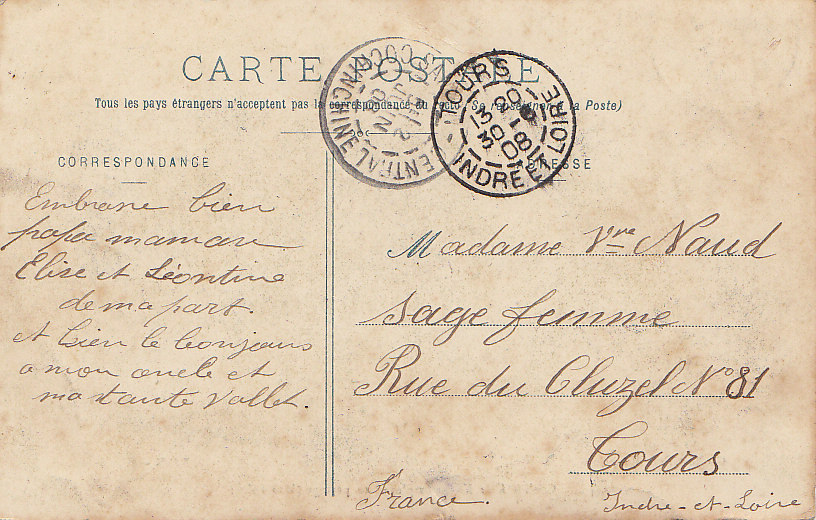 CARTE POSTALE
Tous les pays étrangers n'acceptent pas la correspondance au recto (Se renseigner à la Poste)
TOURS
INDRE ET LOIRE
CENTRAL
COCHINCHINE
CORRESPONDANCE
ADRESSE
Embrasse bien
papa maman
Elise et Léontine
de ma part.
et bien le bonjour
a mon oncle et
ma tante Vallet.
Madame Vve Naud
sage femme
Rue du Cluzel N° 81
Tours
France.
Indre-et-Loire